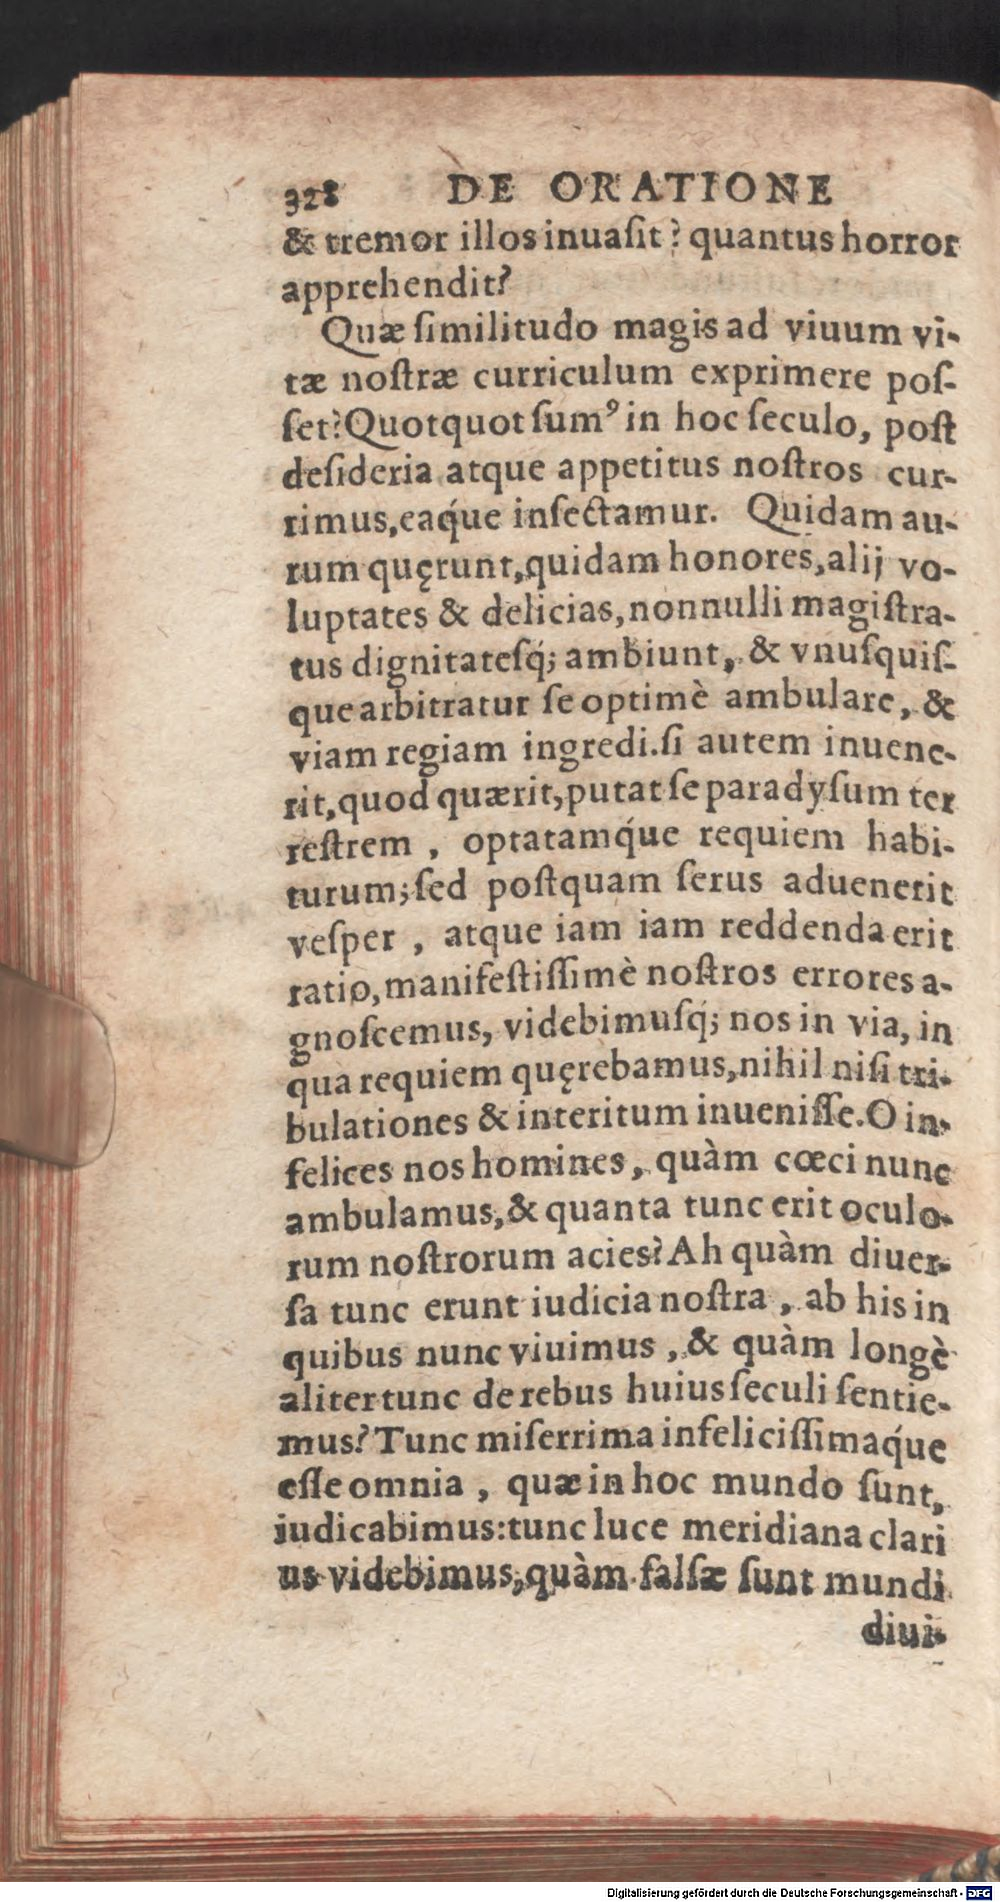 328 DE ORATIONE
& tremor illos inuaſit? quantus horror
apprehendit?
Quæ ſimilitudo magis ad viuum vi-
tæ noſtræ curriculum exprimere poſ-
ſet? Quotquot ſumꝰ in hoc ſeculo, poſt
deſideria atque appetitus noſtros cur-
rimus, eaq́ue inſectamur. Quidam au-
rum quęrunt, quidam honores, alij vo-
luptates & delicias, nonnulli magiſtra-
tus dignitateſq́; ambiunt, & vnuſquiſ-
que arbitratur ſe optimè ambulare, &
viam regiam ingredi. ſi autem inuene-
rit, quod quærit, putat ſe paradyſum ter
reſtrem, optatamq́ue requiem habi-
turum; ſed poſtquam ſerus aduenerit
veſper, atque iam iam reddenda erit
ratio, manifeſtiſſimè noſtros errores a-
gnoſcemus, videbimuſq́; nos in via, in
qua requiem quęrebamus, nihil niſi tri-
bulationes & interitum inueniſſe. O in-
felices nos homines, quàm cœci nunc
ambulamus, & quanta tunc erit oculo-
rum noſtrorum acies? Ah quàm diuer-
ſa tunc erunt iudicia noſtra, ab his in
quibus nunc viuimus, & quàm longè
aliter tunc de rebus huius ſeculi ſentie-
mus? Tunc miſerrima infeliciſſimaq́ue
eſſe omnia, quæ in hoc mundo ſunt,
iudicabimus: tunc luce meridiana clari
us videbimus, quàm falſæ ſunt mundi
diui-
Digitalisierung gefördert durch die Deutsche Forschungsgemeinschaft - DFG